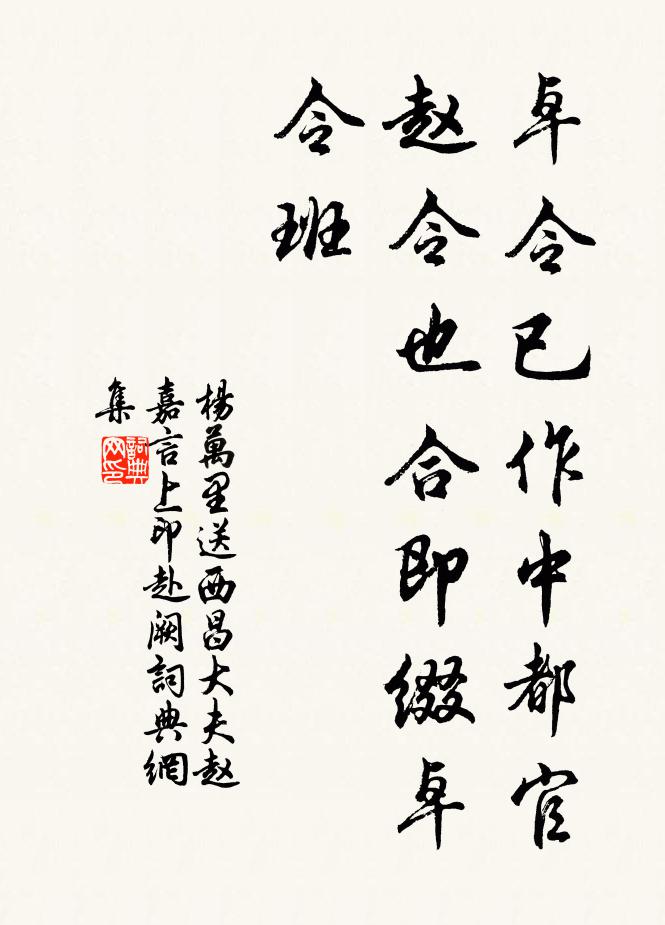 卓令已作中都官
赵令也合即缀卓
令班
楊萬里送西昌大夫赵
嘉言上即赴阙詞典網
集
詞典网印